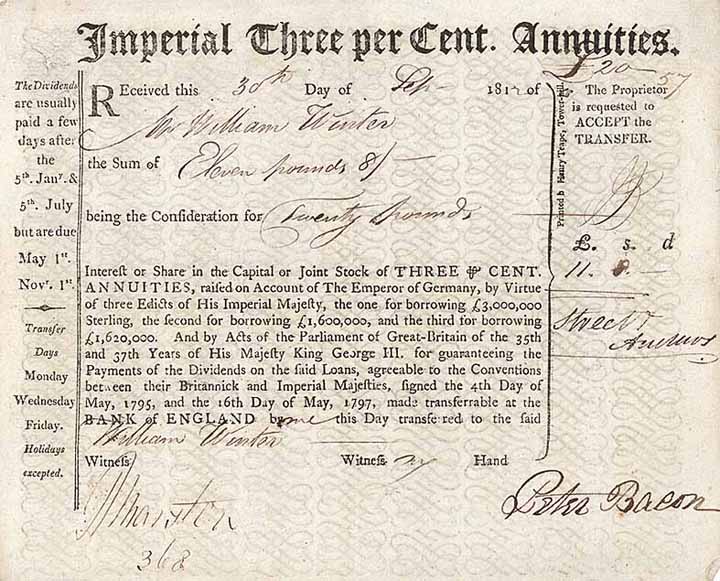 Imperial Three per Cent. Annuities.
The Dividends
are usually
paid a few
days after
the
5th. Janʸ. &
5th. July
but are due
May 1st.
Novr. 1st.
Transfer
Days
Monday
Wednesday
Friday.
Holidays
excepted.
REceived this 30th Day of Sep 1812 of
Mr William Winter
the Sum of Eleven pounds 8/—
being the Consideration for Twenty pounds
Interest or Share in the Capital or Joint Stock of THREE ⅌ CENT.
ANNUITIES, raised on Account of The Emperor of Germany, by Virtue
of three Edicts of His Imperial Majesty, the one for borrowing £3,000,000
Sterling, the second for borrowing £1,600,000, and the third for borrowing
£1,620,000. And by Acts of the Parliament of Great-Britain of the 35th
and 37th Years of His Majesty King George III. for guaranteeing the
Payments of the Dividends on the said Loans, agreeable to the Conventions
between their Britannick and Imperial Majesties, signed the 4th Day of
May, 1795, and the 16th Day of May, 1797, made transferrable at the
BANK of ENGLAND by me this Day transferred to the said
William Winter
Witness Witness my Hand
Peter Bacon
368
Printed by Henry Teape, Tower-hill.
£20
57
The Proprietor
is requested to
ACCEPT the
TRANSFER.
£. s. d
11. 8. —
Street
Andrews